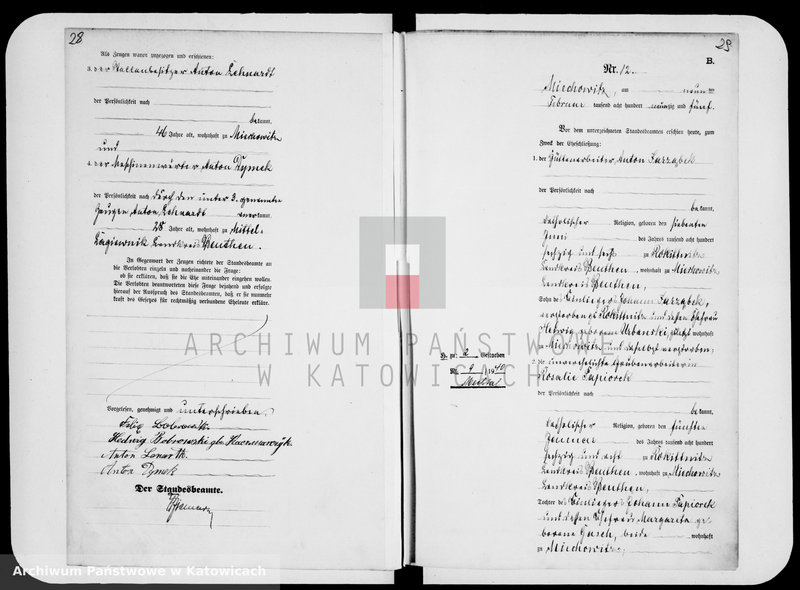 28
Als Zeugen waren zugezogen und erschienen:
3. der Stellenbesitzer Anton Lehnardt
der Persönlichkeit nach
bekannt,
46 Jahre alt, wohnhaft zu Miechowitz
und
4. der Maschinenwärter Anton Dymek
der Persönlichkeit nach durch den unter 3. genannten
Zeugen Anton Lehnardt anerkannt,
28 Jahre alt, wohnhaft zu Mittel-
Lagiewnik Landkreis Beuthen.
In Gegenwart der Zeugen richtete der Standesbeamte an
die Verlobten einzeln und nacheinander die Frage:
ob sie erklären, daß sie die Ehe miteinander eingehen wollen.
Die Verlobten beantworteten diese Frage bejahend und erfolgte
hierauf der Ausspruch des Standesbeamten, daß er sie nunmehr
kraft des Gesetzes für rechtmäßig verbundene Eheleute erkläre.
Vorgelesen, genehmigt und unterschrieben.
Felix Bobrowski
Hedwig Bobrowski gb Kaczmarczyk
Anton Lenartk
Anton Dymek
Der Standesbeamte.
29
B.
Nr. 12.
Miechowitz, am neun ten
Februar tausend acht hundert neunzig und fünf.
Vor dem unterzeichneten Standesbeamten erschien heute, zum
Zweck der Eheschließung:
1. der Hüttenarbeiter Anton Sarzabek
der Persönlichkeit nach
bekannt,
katholischer Religion, geboren den siebenten
Juni des Jahres tausend acht hundert
sechzig und sechs zu Rokittnitz
Landkreis Beuthen, wohnhaft zu Miechowitz
Landkreis Beuthen,
Sohn des Einliegers Johann Sarzabek,
verstorben zu Rokittnitz und dessen Ehefrau
Hedwig geborene Urbanski, zuletzt wohnhaft
zu Miechowitz und daselbst verstorben;
2. die unverehelichte Grubenarbeiterin
Rosalie Tapiorek
der Persönlichkeit nach
bekannt,
katholischer Religion, geboren den fünften
Januar des Jahres tausend acht hundert
sechzig und acht zu Rokittnitz
Landkreis Beuthen, wohnhaft zu Miechowitz
Landkreis Beuthen,
Tochter des Einliegers Johann Tapiorek
und dessen Ehefrau Margareta ge-
borene Gusch, beide wohnhaft
zu Miechowitz.
H. zu: 2 Gestorben
Nr. 9 1940
ARCHIWUM PAŃSTWOWE
W KATOWICACH
Archiwum Państwowe w Katowicach